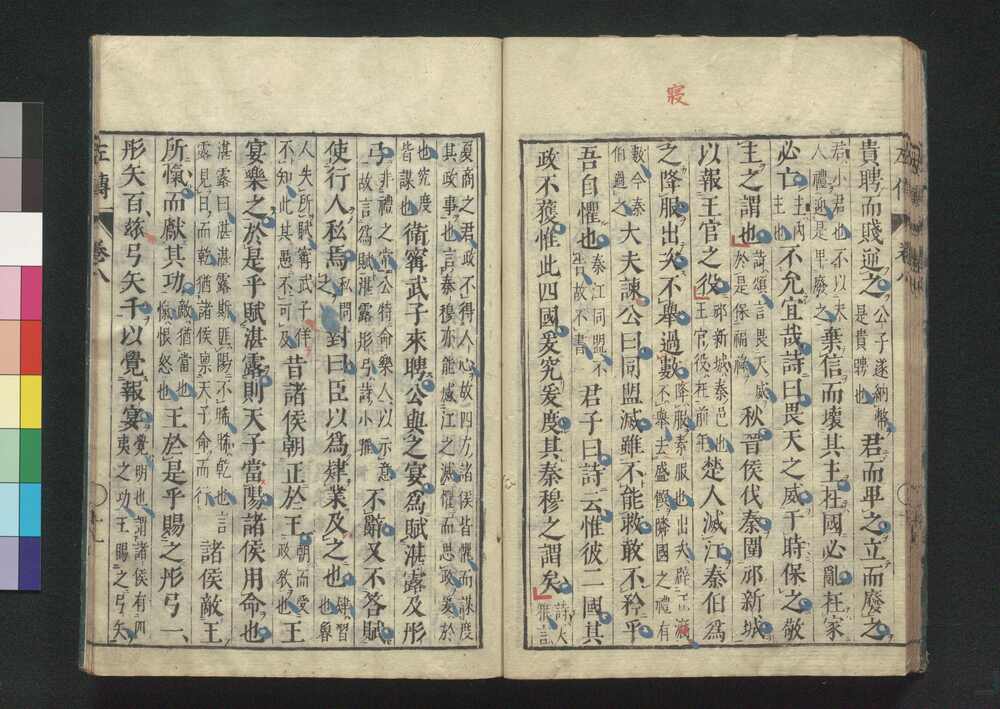 寢
貴聘而賤逆之公子遂納幣是貴聘也君而卑之立而廢之
君小君也不以夫人禮迎是卑廢之棄信而壞其主在國必亂在家
必亡主内主也不允宜哉詩曰畏天之威于時保之敬
主之謂也詩頌言畏天威於是保福祿秋晉侯伐秦圍邧新城
以報王官之役邧新城秦邑也王官役在前年楚人滅江秦伯為
之降服出次不舉過數降服素服也出次辟正寢不舉去盛饌隣國之禮有
數今秦伯過之大夫諫公曰同盟滅雖不能救敢不矜乎
吾自懼也秦江同盟不告故不書君子曰詩云惟彼二國其
政不獲惟此四國爰究爰度其秦穆之謂矣詩大雅言
夏商之君政不得人心故四方諸侯皆懼而謀度其政事也言秦穆亦能感江之滅懼而思政爰於
也究度皆謀也衛甯武子來聘公與之宴為賦湛露及彤
弓非禮之常公特命樂人以示意故言為賦湛露彤弓詩小雅不辭又不荅賦
使行人私焉私問之對曰臣以為肄業及之也肄習也魯
人失所賦甯武子佯不知此其愚不可及昔諸侯朝正於王朝而受政教也王
宴樂之於是乎賦湛露則天子當陽諸侯用命也
湛露曰湛湛露斯匪陽不晞晞乾也言露見日而乾猶諸侯稟天子命而行諸侯敵王
所愾而獻其功敵猶當也愾恨怒也王於是乎賜之彤弓一
彤矢百玈弓矢千以覺報宴覺明也謂諸侯有四夷之功王賜之弓矢
左傳 卷八 十一